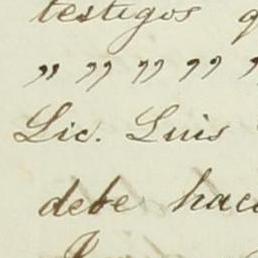 testigos
" " " " "
Lic. Luis
debe hac